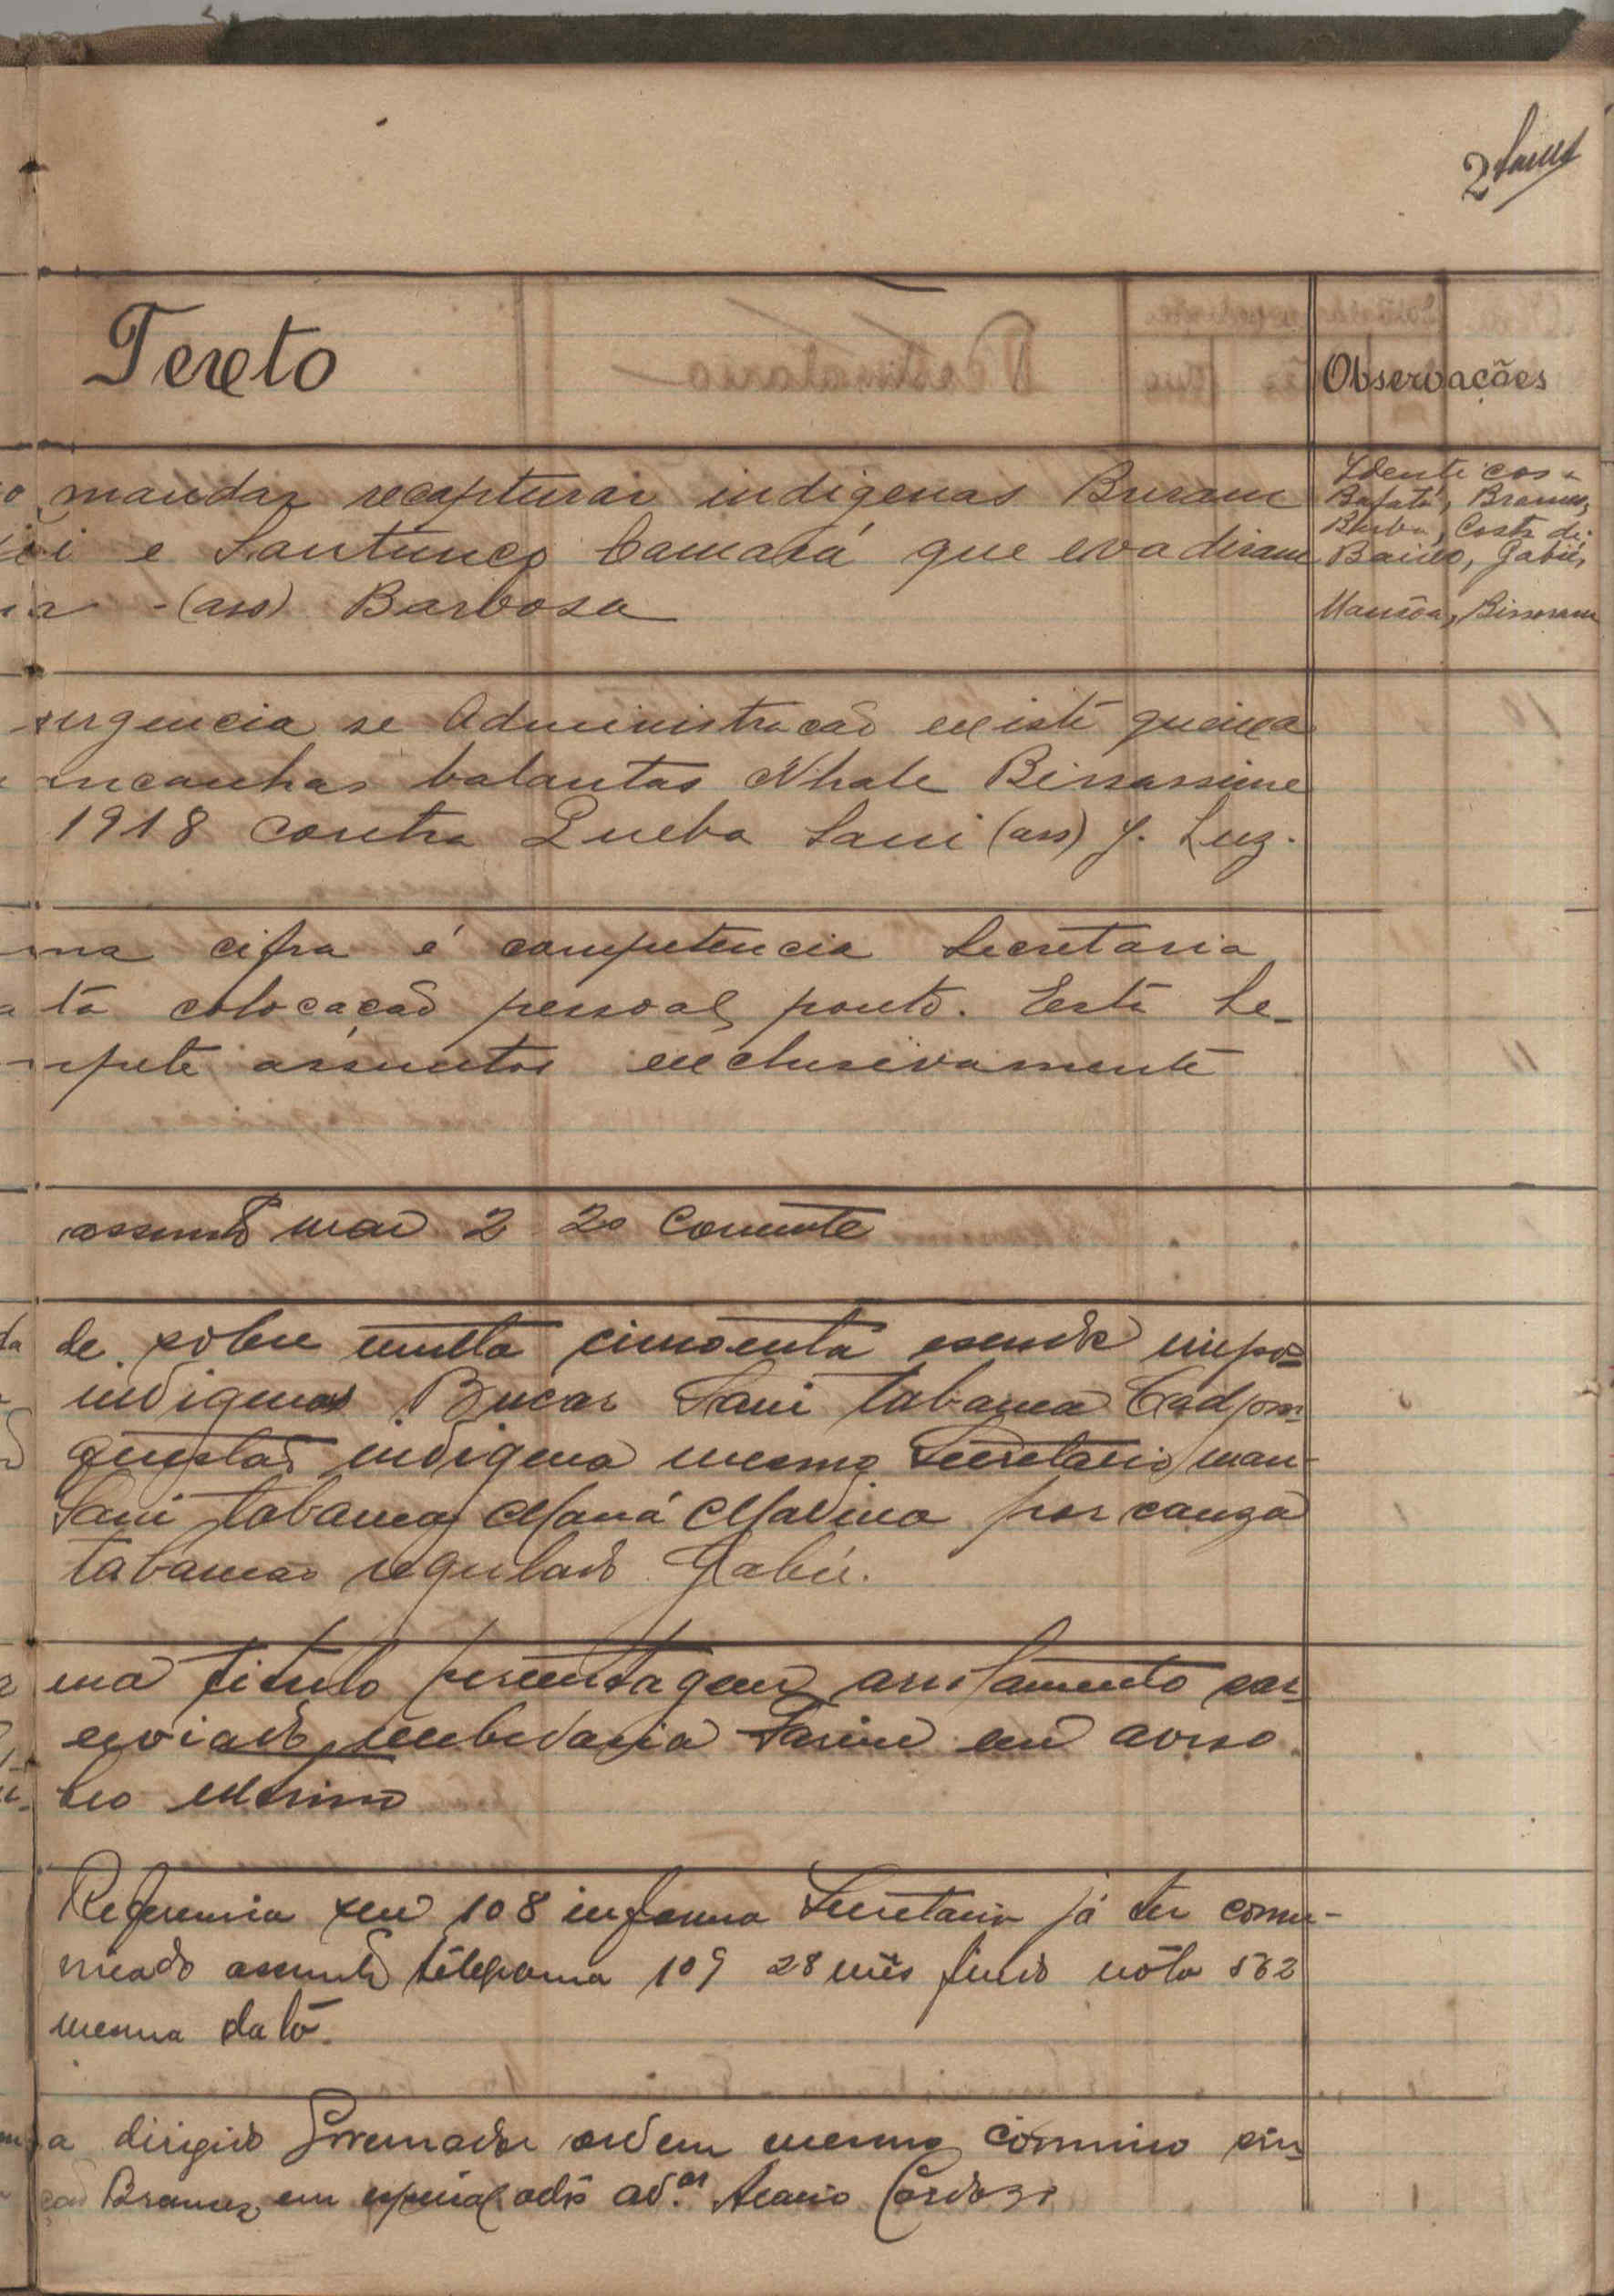 2
Texto
Observações
mandar recapturar indigenas Buram
e Santunço Camará que evadiram
(ass) Barbosa
Identicos a
Bafatá, Brames,
Buba, Costa de
Baixo, Gabú,
Mansôa, Bissoram
urgencia se Administração existe queixa
mcanhas balantas Nhale Bissassime
1918 contra Queba Sani (ass) J. Luz.
ma cifra é competencia Secretaria
ta colocação pessoal ponto. Esta Se-
mpete assuntos exclusivamente
assunto meu 2 20 corrente
de sobre multa cincoenta escudos impos
indigenas Bucar Sani tabanca Cad por
questão indigena mesmo Secretario man-
Sani tabanca Maná Madina por causa
tabancas regulado Gabú.
ma titulo percentagem arrolamento
enviado recebedoria Farim em aviso
Referencia seu 108 informa Secretaria já ter comu-
nicado assunto telegrama 109 28 mês findo nota 562
mesma data.
a dirigido Governador ordem mesmo comunico
Brames em especial adº ad.or Acacio Cardoso